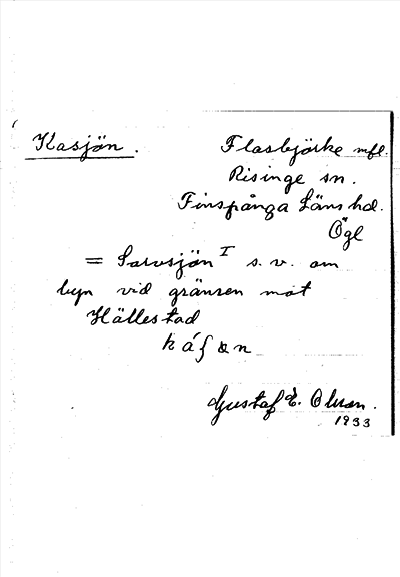 Kasjön.
Flasbjörke mfl.
Risinge sn.
Finspånga Läns hd.
Ögl
= Sarvsjön I s. v. om
byn vid gränsen mot
Hällestad
Gustaf E. Olsson.
1933